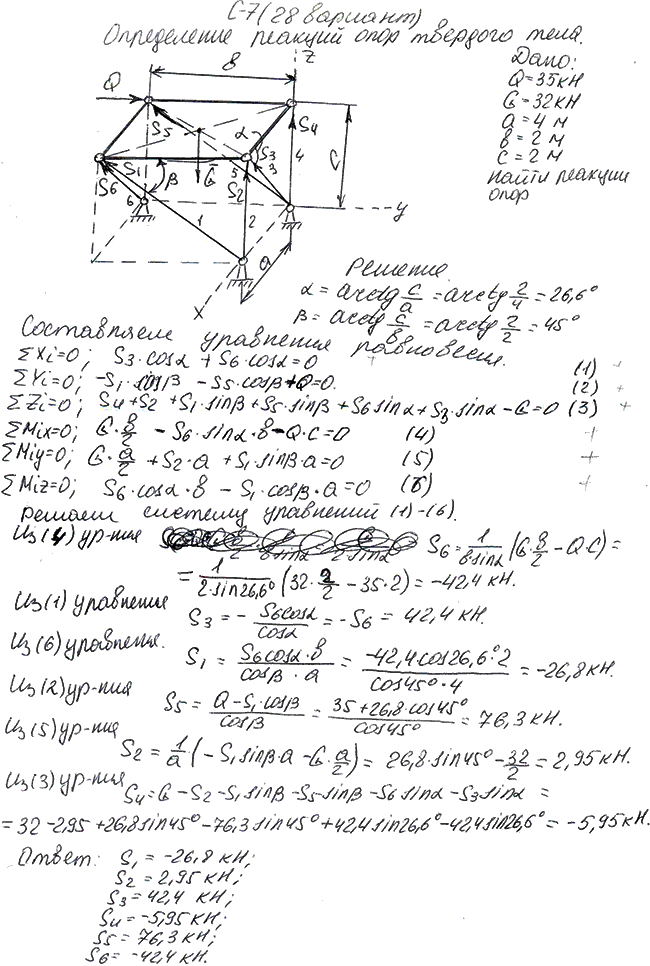 С-7 (28 вариант)
Определение реакций опор твердого тела.
Дано:
Q=35кН
G=32кН
a=4 м
в=2 м
c=2 м
найти реакции
опор
в
z
Q
S5
α
S4
S3
4
3
C
S1
β
G
5
S2
S6
6
1
2
y
a
x
Решение
α = arctg c/a = arctg 2/4 = 26,6°
β = arctg c/в = arctg 2/2 = 45°
Составляем уравнения равновесия.
ΣXi=0; S3·cosα + S6·cosα=0 (1) +
ΣYi=0; -S1·cosβ - S5·cosβ+Q=0. (2) +
ΣZi=0; S4+S2+S1·sinβ+S5·sinβ+S6 sinα+S3·sinα-G=0 (3) +
ΣMix=0; G·в/2 - S6·sinα·в-Q·C=0 (4) +
ΣMiy=0; G·a/2 + S2·a + S1·sinβ·a=0 (5) +
ΣMiz=0; S6·cosα·в - S1·cosβ·a=0 (6) +
решаем систему уравнений (1)-(6).
Из(4) ур-ния S6 = 1/(в sinα) (G·в/2 - Q·C) =
= 1/(2·sin26,6°) (32·2/2 - 35·2) = -42,4 кН.
Из(1) уравнения S3 = - S6cosα/cosα = -S6 = 42,4 кН.
Из(6) уравнения. S1 = S6cosα·в/(cosβ·a) = -42,4cos26,6°·2/(cos45°·4) = -26,8 кН.
Из(2) ур-ния S5 = (Q-S1·cosβ)/cosβ = (35+26,8·cos45°)/cos45° = 76,3 кН.
Из(5) ур-ния S2 = 1/a (-S1 sinβ·a - G·a/2) = 26,8·sin45° - 32/2 = 2,95 кН.
Из(3) ур-ния S4 = G - S2 - S1 sinβ - S5 sinβ - S6 sinα - S3·sinα =
= 32 - 2,95 + 26,8 sin45° - 76,3 sin45° + 42,4 sin26,6° - 42,4 sin26,6° = -5,95 кН.
Ответ: S1 = -26,8 кН;
S2 = 2,95 кН;
S3 = 42,4 кН;
S4 = -5,95 кН;
S5 = 76,3 кН;
S6 = -42,4 кН.